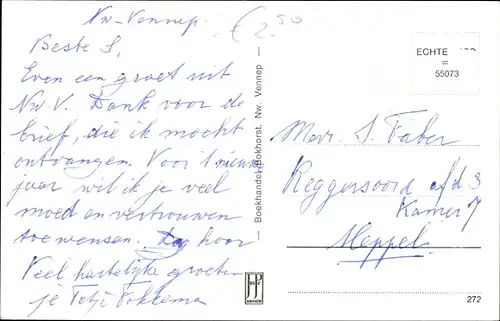 Nw-Vennep.
€ 2.50
Beste S,
Even een groet uit
Nw V. Dank voor de
brief, die ik mocht
ontvangen. Voor 't nieuwe
jaar wil ik je veel
moed en vertrouwen
toewensen. Dag hoor
Veel hartelijke groeten
je Tetje Fokkema
— Boekhandel Bokhorst, Nw. Vennep —
ECHTE
=
55073
Mevr. S. Faber
Reggersoord afd 3
Kamer 7
Meppel
JP
272